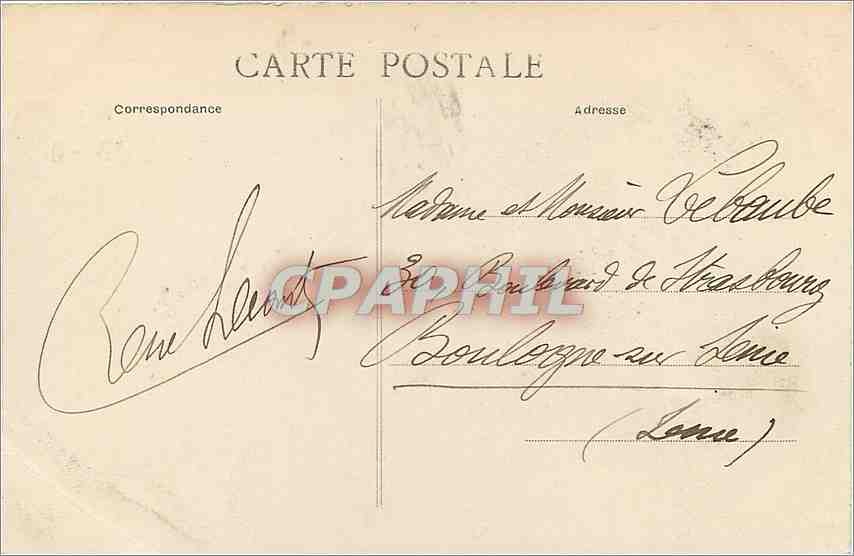 CARTE POSTALE
Correspondance
Adresse
Madame et Monsieur Lebaube
Boulevard de Strasbourg
Boulogne sur Seine
(Seine)
René
CPAPHIL